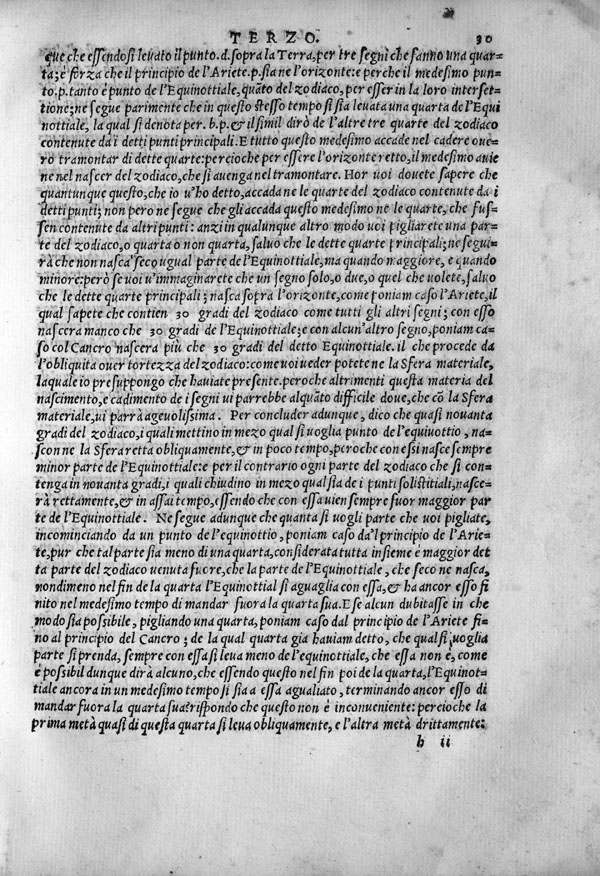 TERZO. 30
que che essendosi levato il punto.d.sopra la Terra,per tre segni che fanno una quar-
ta;è forza che il principio de l'Ariete.p.sia ne l'orizonte:e perche il medesimo pun-
to.p.tanto è punto de l'Equinottiale,quãto del zodiaco,per esser in la loro interset-
tione;ne segue parimente che in questo stesso tempo si sia levata una quarta de l'Equi
nottiale, la qual si denota per.b.p.& il simil dirò de l'altre tre quarte del zodiaco
contenute da i detti punti principali.E tutto questo medesimo accade nel cadere ove-
ro tramontar di dette quarte:percioche per essere l'orizonte retto,il medesimo avie
ne nel nascer del zodiaco,che si avenga nel tramontare. Hor voi dovete sapere che
quantunque questo,che io v'ho detto,accada ne le quarte del zodiaco contenute da i
detti punti; non pero ne segue che gli accada questo medesimo ne le quarte, che fus-
sen contenute da altri punti: anzi in qualunque altro modo voi pigliarete una par-
te del zodiaco,o quarta o non quarta, salvo che le dette quarte principali; ne segui-
rà che non nasca sẽco ugual parte de l'Equinottiale,ma quando maggiore, e quando
minore:però se voi v'immaginarete che un segno solo,o due,o quel che volete,salvo
che le dette quarte principali; nasca sopra l'orizonte,come poniam caso l'Ariete,il
qual sapete che contien 30 gradi del zodiaco come tutti gli altri segni; con esso
nascerà manco che 30 gradi de l'Equinottiale;e con alcun'altro segno,poniam ca-
so col Cancro nascera più che 30 gradi del detto Equinottiale. il che procede da
l'obliquita over tortezza del zodiaco:come voi veder potete ne la Sfera materiale,
laquale io presuppongo che haviate presente.peroche altrimenti questa materia del
nascimento,e cadimento de i segni vi parrebbe alquãto difficile dove,che cõ la Sfera
materiale,vi parrà agevolissima. Per concluder adunque, dico che quasi novanta
gradi del zodiaco,i quali mettino in mezo qual si voglia punto de l'equivottio, na-
scon ne la Sfera retta obliquamente,& in poco tempo,peroche con essi nasce sempre
minor parte de l'Equinottiale:e per il contrario ogni parte del zodiaco che si con-
tenga in novanta gradi,i quali chiudino in mezo qual sia de i punti solistitiali,nasce-
rà rettamente,& in assai tempo,essendo che con essa vien sempre fuor maggior par
te de l'Equinottiale. Ne segue adunque che quanta si vogli parte che voi pigliate,
incominciando da un punto de l'equinottio, poniam caso da'l principio de l'Arie-
te,pur che tal parte sia meno di una quarta,considerata tutta insieme è maggior det
ta parte del zodiaco venuta fuore,che la parte de l'Equinottiale , che seco ne nasca,
nondimeno nel fin de la quarta l'Equinottial si aguaglia con essa,& ha ancor esso fi
nito nel medesimo tempo di mandar fuora la quarta sua.E se alcun dubitasse in che
modo sia possibile, pigliando una quarta, poniam caso dal principio de l'Ariete fi-
no al principio del Cancro ; de la qual quarta gia haviam detto, che qual si voglia
parte si prenda, sempre con essa si leva meno de l'equinottiale, che essa non è, come
è possibil dunque dirà alcuno,che essendo questo nel fin poi de la quarta,l'Equinot-
tiale ancora in un medesimo tempo si sia a essa agualiato , terminando ancor esso di
mandar fuora la quarta sua?rispondo che questo non è inconveniente: percioche la
prima metà quasi di questa quarta si leva obliquamente, e l'altra metà drittamente:
h ii